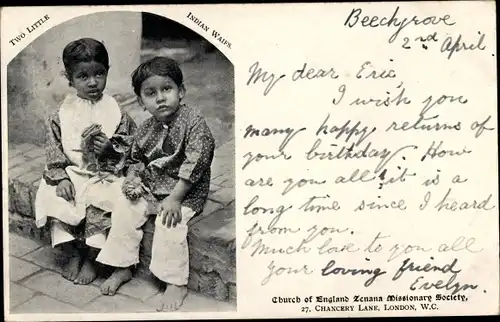 TWO LITTLE INDIAN WAIFS.
Beechgrove
2nd April.
My dear Eric,
I wish you
many happy returns of
your birthday. How
are you all; it is a
long time since I heard
from you.
Much love to you all
Your loving friend
Evelyn.
Church of England Zenana Missionary Society,
27, CHANCERY LANE, LONDON, W.C.